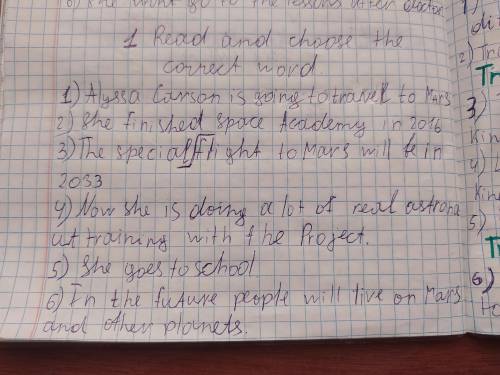 6) She wont go to the lessons after doctor
1 Read and choose the
correct word
1) Alyssa Carson is going to travel to Mars
2) She finished space Academy in 2016
3) The special flight to Mars will be in
2033
4) Now she is doing a lot of real astrona
ut training with the Project.
5) She goes to school
6) In the future people will live on Mars
and other planets.
1)
di
2) Tr
Tr
3)
Kin
4)
Kin
5)
Tr
6)
Ho